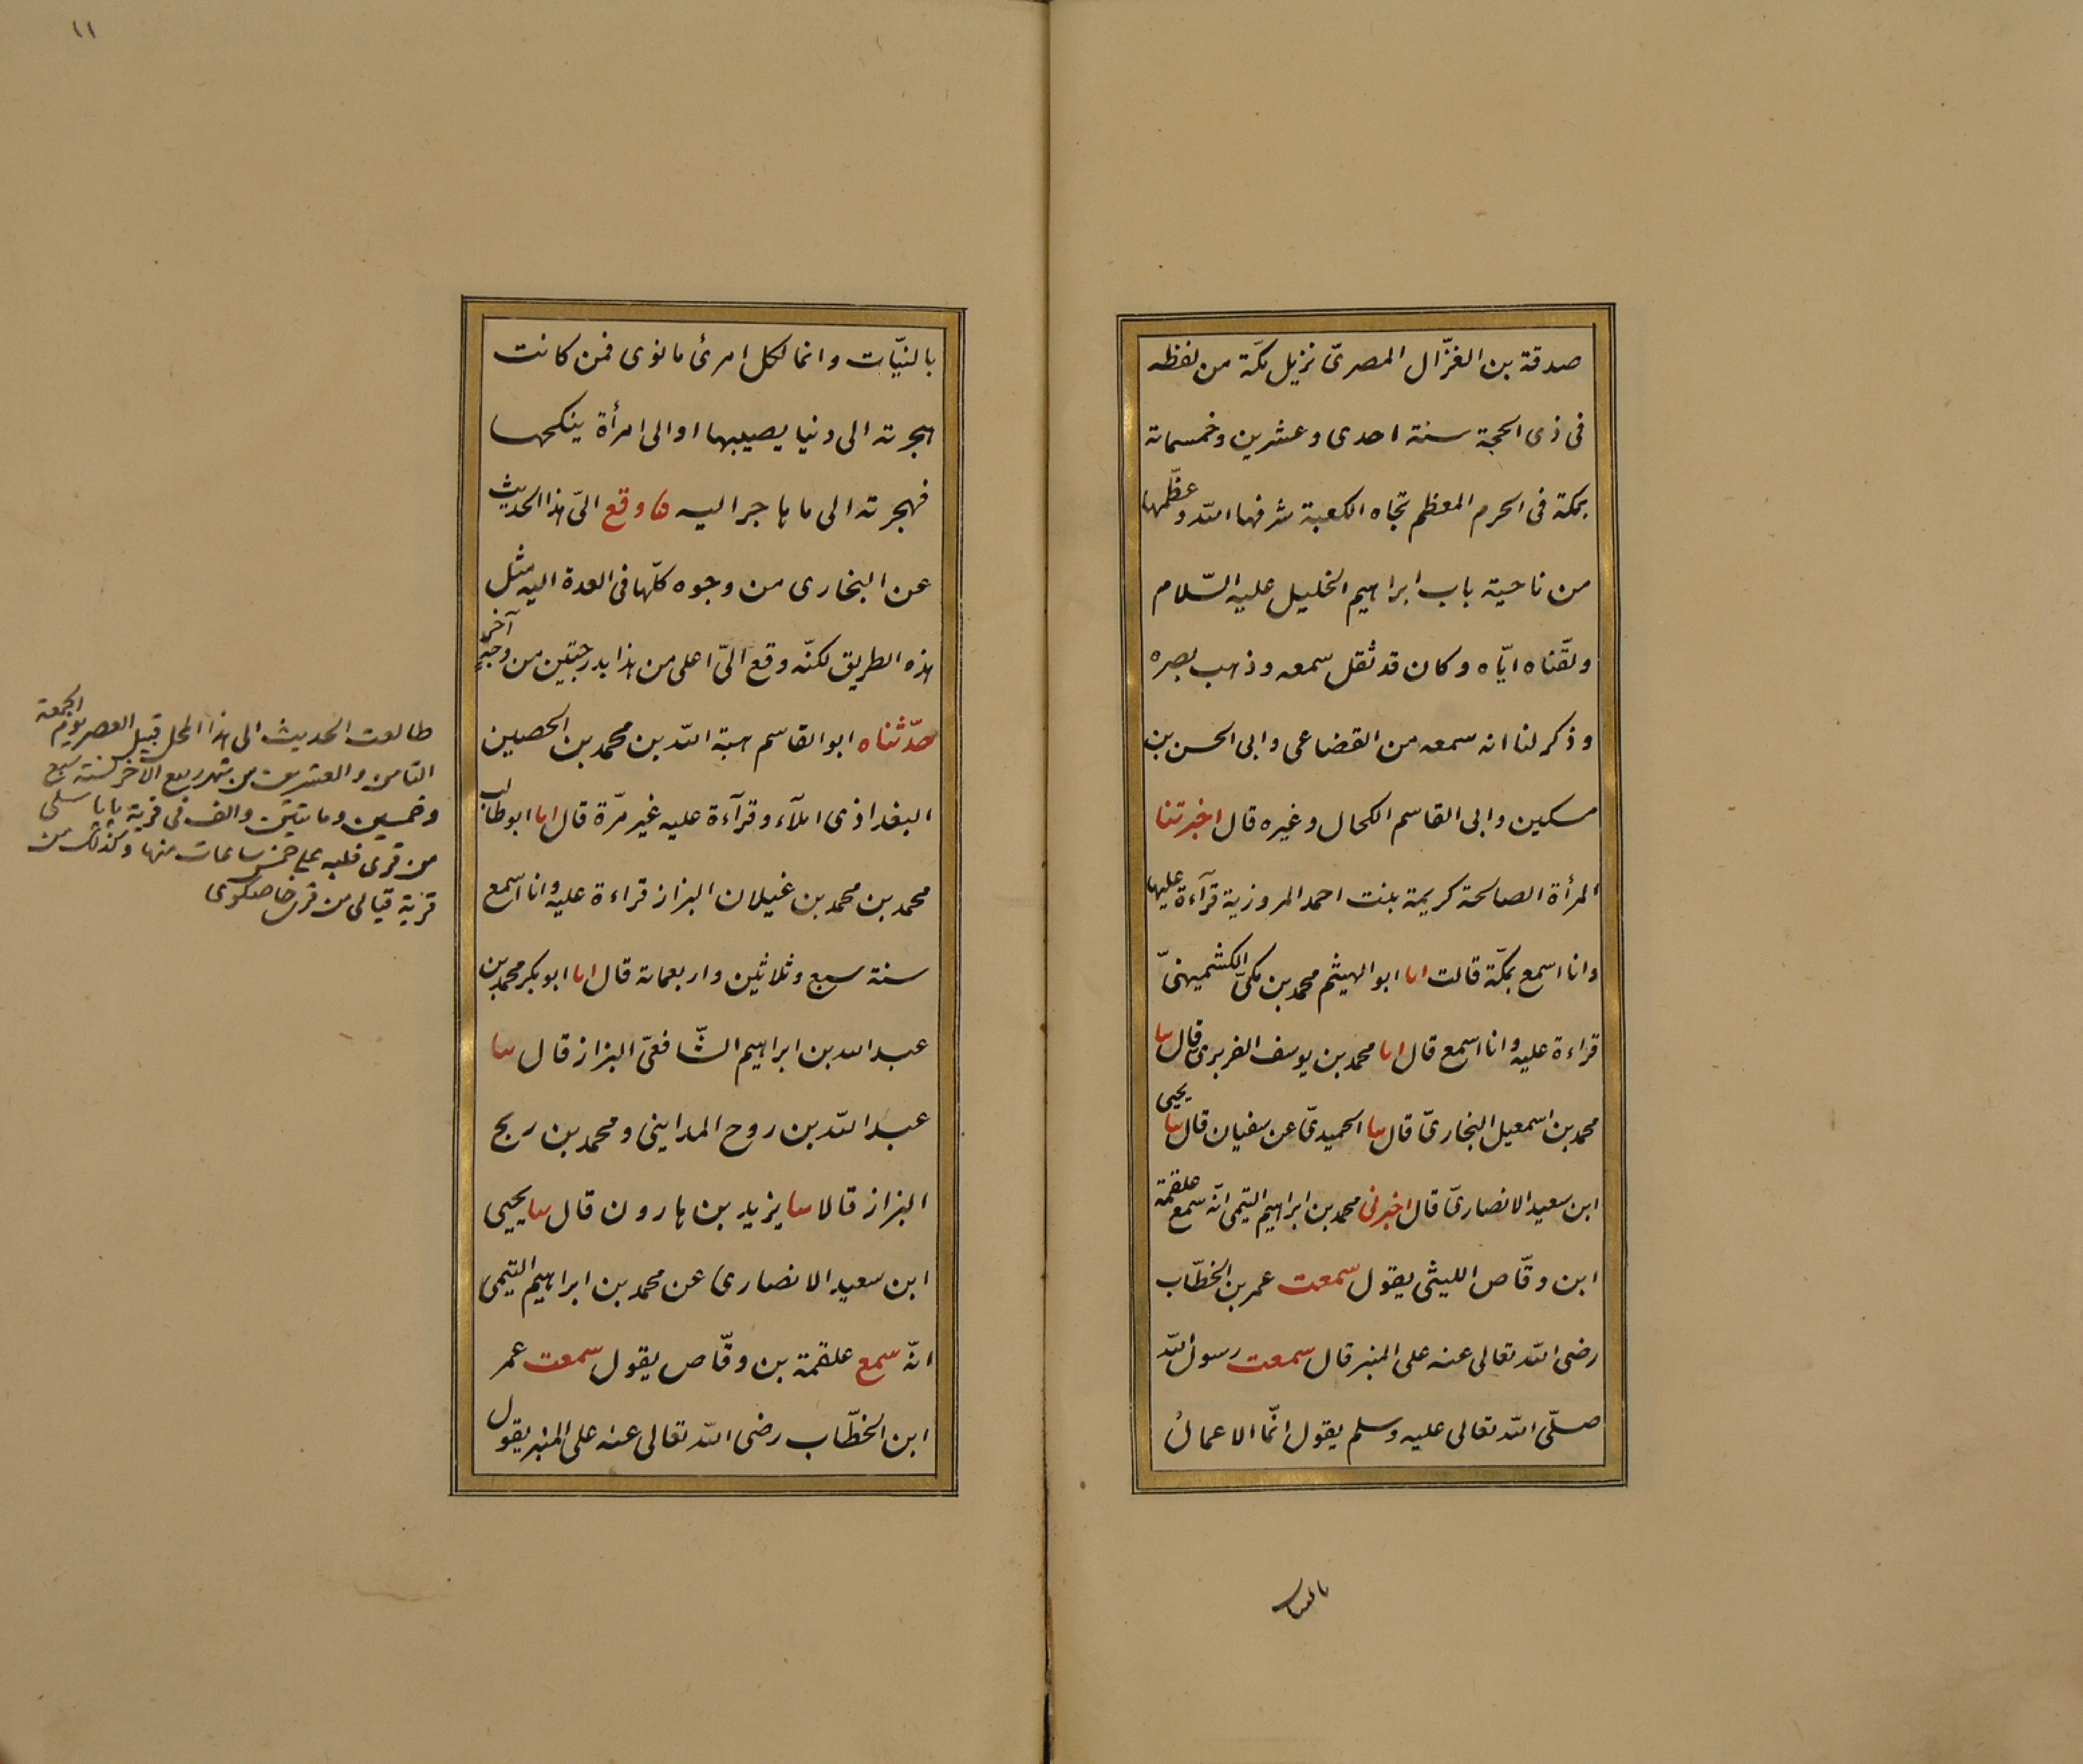 صدقة بن الغزّال المصرىّ نزيل مكّة من لفظه
فى ذى الحجة سنة احدى وعشرين وخمسمائة
بمكة فى الحرم المعظم تجاه الكعبة شرفها الله وعظّمها
من ناحية باب ابراهيم الخليل عليه السّلام
ولقّناه ايّاه وكان قد ثقل سمعه وذهب بصره
وذكر لنا انه سمعه من القضاعى وابى الحسن بن
مسكين وابى القاسم الكحال وغيره قال اخبرتنا
المرأة الصالحة كريمة بنت احمد المروزية قرآءة عليها
وانا اسمع بمكّة قالت انا ابو الهيثم محمد بن مكىّ الكشميهنىّ
قراءة عليه وانا اسمع قال انا محمد بن يوسف الفربرى قال نا
محمد بن اسمعيل البخارىّ قال نا الحميدىّ عن سفيان قال نا يحيى
ابن سعيد الانصارىّ قال اخبرنى محمد بن ابراهيم التيمى انّه سمع علقمة
ابن وقّاص الليثى يقول سمعت عمر بن الخطّاب
رضى الله تعالى عنه على المنبر قال سمعت رسول الله
صلّى الله تعالى عليه وسلم يقول انّما الاعمالُ
بالنيات
١١
بالنيّات وانما لكل امرئ ما نوى فمن كانت
هجرته الى دنيا يصيبها او الى امرأة ينكحها
فهجرته الى ما هاجر اليه وقع الىّ هذا الحديث
عن البخارى من وجوه كلّها فى العدة اليه مثل
هذه الطريق لكنّه وقع الىّ اعلى من هذا بدرجتين من وجهٍ آخر
حدّثناه ابو القاسم هبة الله بن محمد بن الحصين
البغداذى املآء وقرآءة عليه غير مرّة قال انا ابو طالب
محمد بن محمد بن غيلان البزاز قراءة عليه وانا اسمع
سنة سبع وثلاثين واربعمائة قال انا ابو بكر محمد بن
عبد الله بن ابراهيم الشّافعىّ البزاز قال نا
عبد الله بن روح المداينى ومحمد بن ربح
البزاز قالا نا يزيد بن هارون قال نا يحيى
ابن سعيد الانصارى عن محمد بن ابراهيم التيمى
انّه سمع علقمة بن وقّاص يقول سمعت عمر
ابن الخطّاب رضى الله تعالى عنه على المنبر يقول
طالعت الحديث الى هذا المحل قبيل العصر يوم الجمعة
الثامن والعشرين من شهر ربيع الاخر لسنة سبع
وخمسين ومائتين والف فى قرية
من قرى فلبه على خمس ساعات منها وكذلك من
قرية من قرى خاصكوى